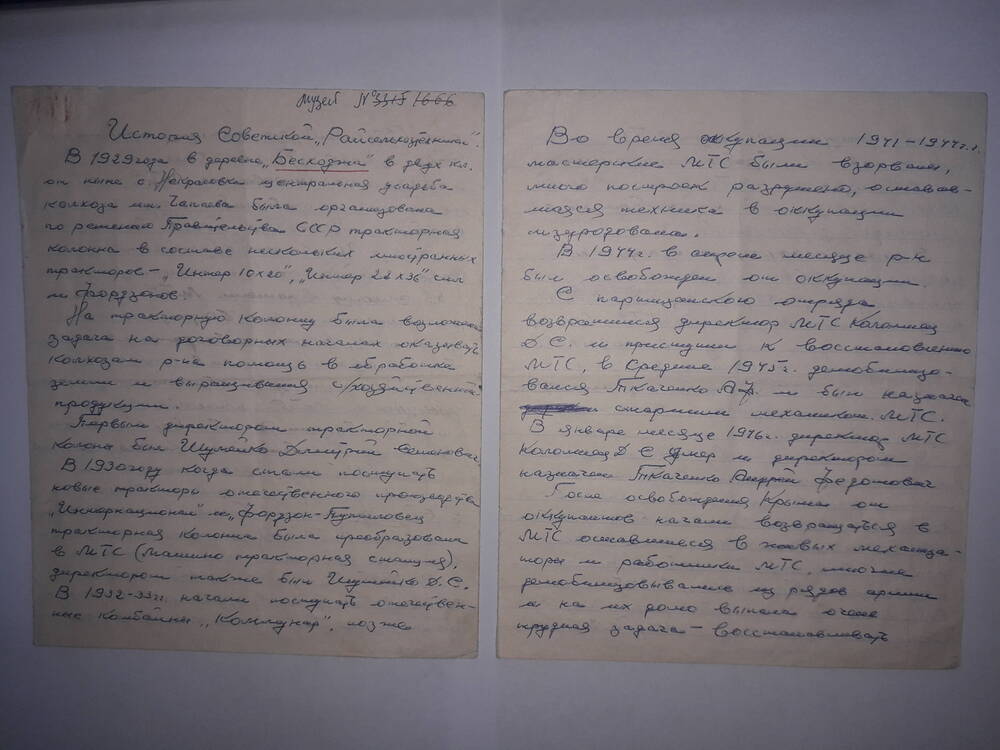 музей №3315 1666
История Советской „Райсельхозтехники".
В 1929 года в деревне „Бесходжа" в двух кл.
от ныне с Некрасовки центральная усадьба
колхоза им. Чапаева была организована
по решению Правительства СССР тракторная
колонна в составе нескольких иностранных
тракторов – „Интер 10х20", „Интер 22х36" сил
и Фордзонов
На тракторную колонну была возложена
задача на договорных началах оказывать
колхозам р-на помощь в обработке
земли и выращивания с/хозяйственной
продукции.
Первым директором тракторной
колоны был Шумейко Дмитрий Семенович.
В 1930 году когда стали поступать
новые тракторы отечественного производства
„Интернационал" и „Фордзон-Путиловец
тракторная колонна была преобразована
в МТС (Машино тракторная станция),
директором также был Шумейко Д.С.
В 1932-33гг. начали поступать отечествен-
ные комбайны „Коммунар", позже
Во время оккупации 1941–1944г.г.
мастерские МТС были взорваны,
много построек разрушено, оставав-
шаяся техника в оккупации
изуродована.
В 1944г. в апреле месяце р-н
был освобожден от оккупации.
С партизанского отряда
возвратился директор МТС Коломиец
Д.С. и приступил к восстановлению
МТС, в средине 1945г. демобилизо-
вался Ткаченко А.Ф. и был назначен
старшим механиком МТС.
В январе месяце 1946г. директор МТС
Коломиец Д С умер и директором
назначен Ткаченко Андрей Федотович
После освобождения Крыма от
оккупантов начали возвращаться в
МТС оставшиеся в живых механиза-
торы и работники МТС, многие
демобилизовывались из рядов армии
и на их долю выпала очень
трудная задача – восстанавливать